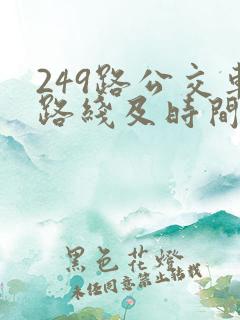 249路公交車
路綫及時間
黑色花燈
未经同意禁止转载